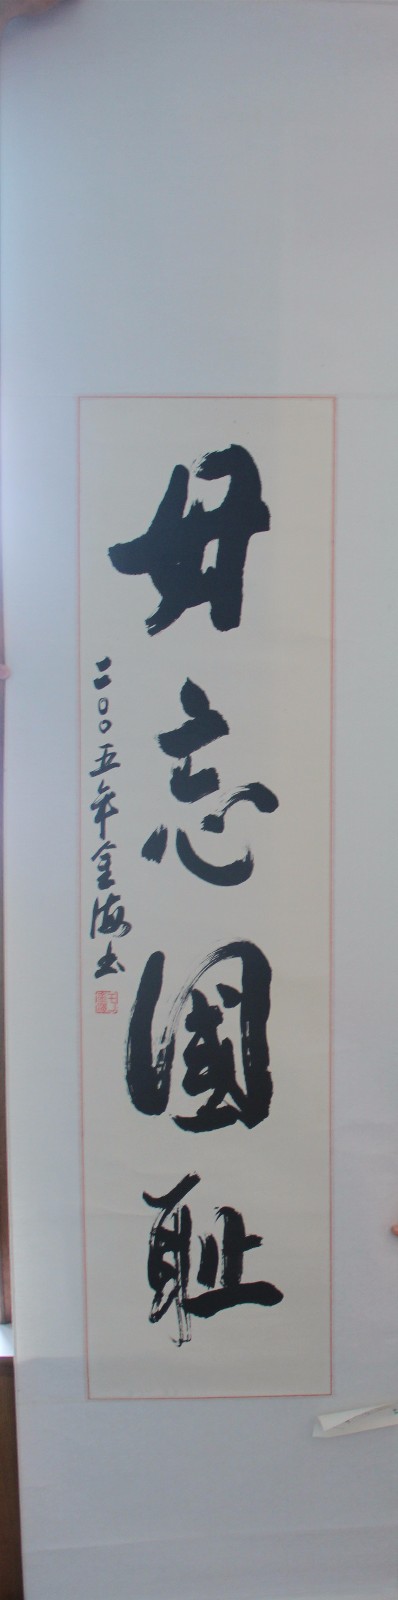 毋忘國耻
二〇〇五年金海书